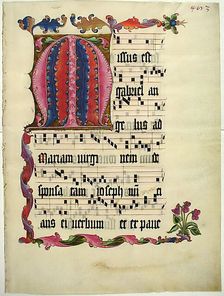 M
issus est
gabriel an
ge lus ad
Mariam virgi nem
sponsa tam joseph
ans ei verbum et ex pave